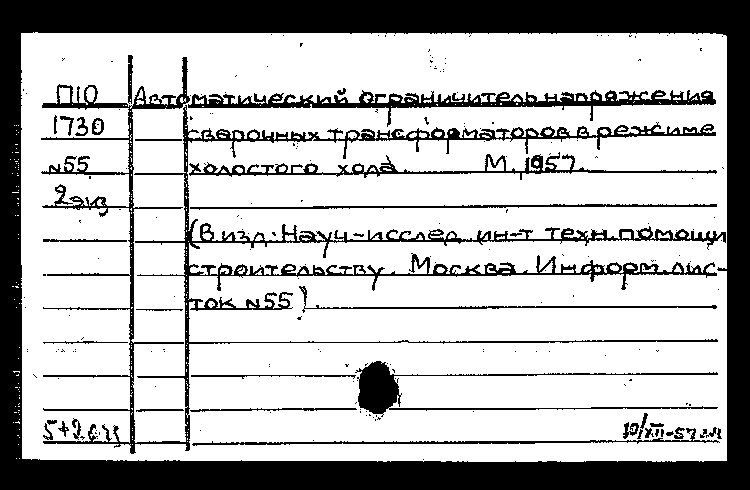 П10 Автоматический ограничитель напряжения
1730 сварочных трансформаторов в режиме
№55 холостого хода. М., 1957.
2 экз
(В изд: Науч-исслед. ин-т техн. помощи
строительству. Москва. Информ. лис-
ток №55).
5+2
10/XII-57